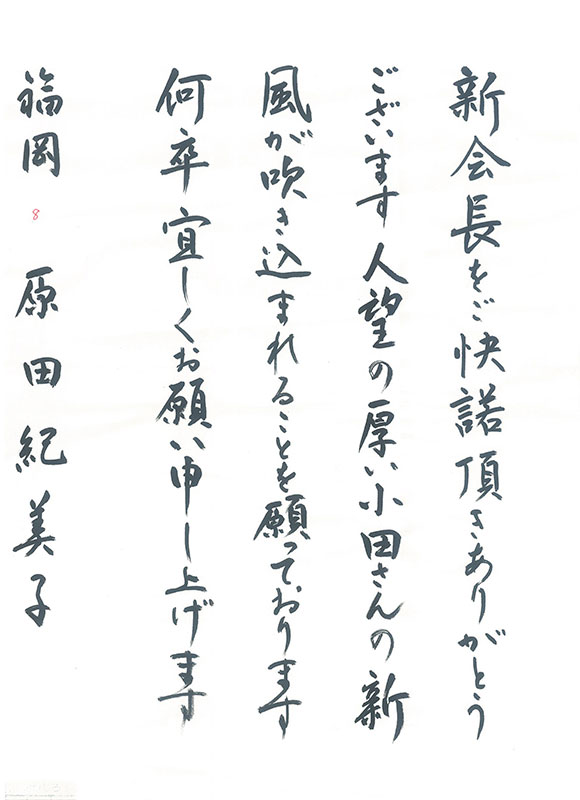 新会長をご快諾頂きありがとう
ございます人望の厚い小田さんの新
風が吹き込まれることを願っております
何卒宜しくお願い申し上げます
福岡 8 原田紀美子